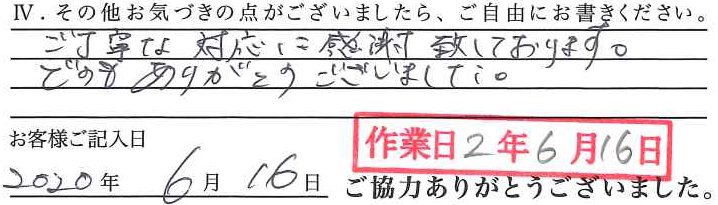 Ⅳ．その他お気づきの点がございましたら、ご自由にお書きください。
ご丁寧な対応に感謝致しております。
どうもありがとうございました。
お客様ご記入日
作業日2年6月16日
2020年 6月 16日 ご協力ありがとうございました。